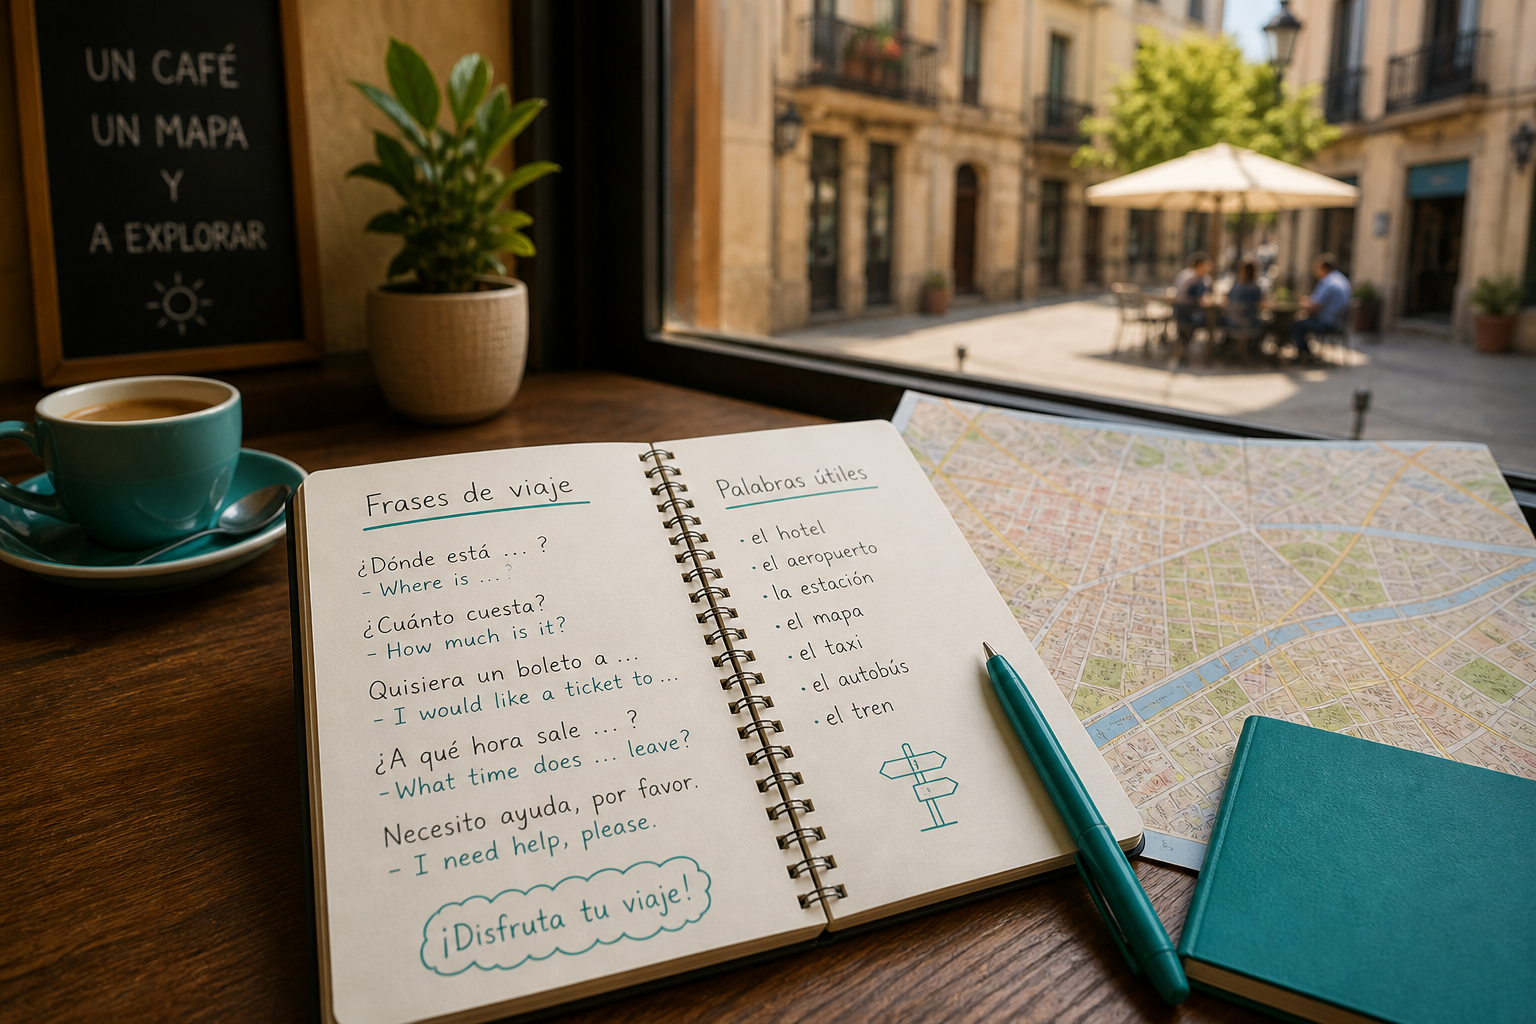 UN CAFÉ
UN MAPA
Y
A EXPLORAR
Frases de viaje
¿Dónde está ... ?
- Where is ... ?
¿Cuánto cuesta?
- How much is it?
Quisiera un boleto a ...
- I would like a ticket to ...
¿A qué hora sale ... ?
- What time does ... leave?
Necesito ayuda, por favor.
- I need help, please.
¡Disfruta tu viaje!
Palabras útiles
· el hotel
· el aeropuerto
· la estación
· el mapa
· el taxi
· el autobús
· el tren